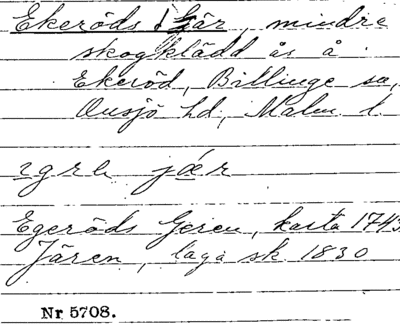 Ekeröds Gjär, mindre
skogklädd ås å
Ekeröd, Billinge sn,
Onsjö hd, Malm. l.
jǽr
Egeröds Geren, karta 1743
Jären, laga sk 1830
Nr 5708.